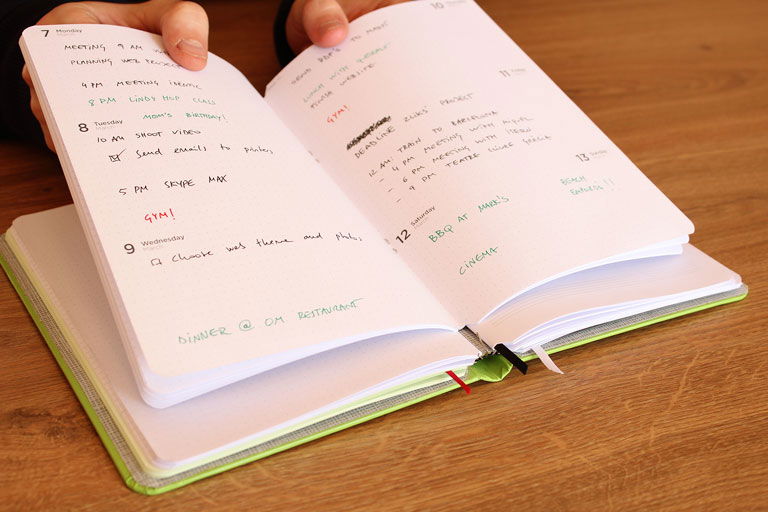 7 Monday
March
MEETING 9 AM
PLANNING WEB PROJECT
4 PM MEETING
8 PM LINDY HOP CLASS
8 Tuesday
March
MOM'S BIRTHDAY!
10 AM SHOOT VIDEO
Send emails to printers
5 PM SKYPE MAX
GYM!
9 Wednesday
March
Choose web theme and photos
DINNER @ OM RESTAURANT
10
TO MARC
LUNCH WITH
FINISH WEBSITE
GYM!
11 Friday
DEADLINE PROJECT
12 AM: TRAIN TO BARCELONA
- 4 PM MEETING WITH MIQUEL
- 6 PM MEETING WITH
- 9 PM TEATRE LLIURE
12 Saturday
March
BBQ AT MARK'S
CINEMA
13 Sunday
BEACH